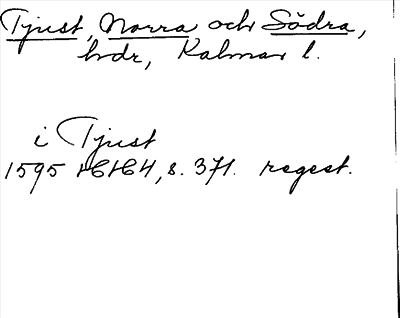 Tjust, Norra och Södra,
hdr, Kalmar l.
i Tjust
1595 HH, s. 371. regest.